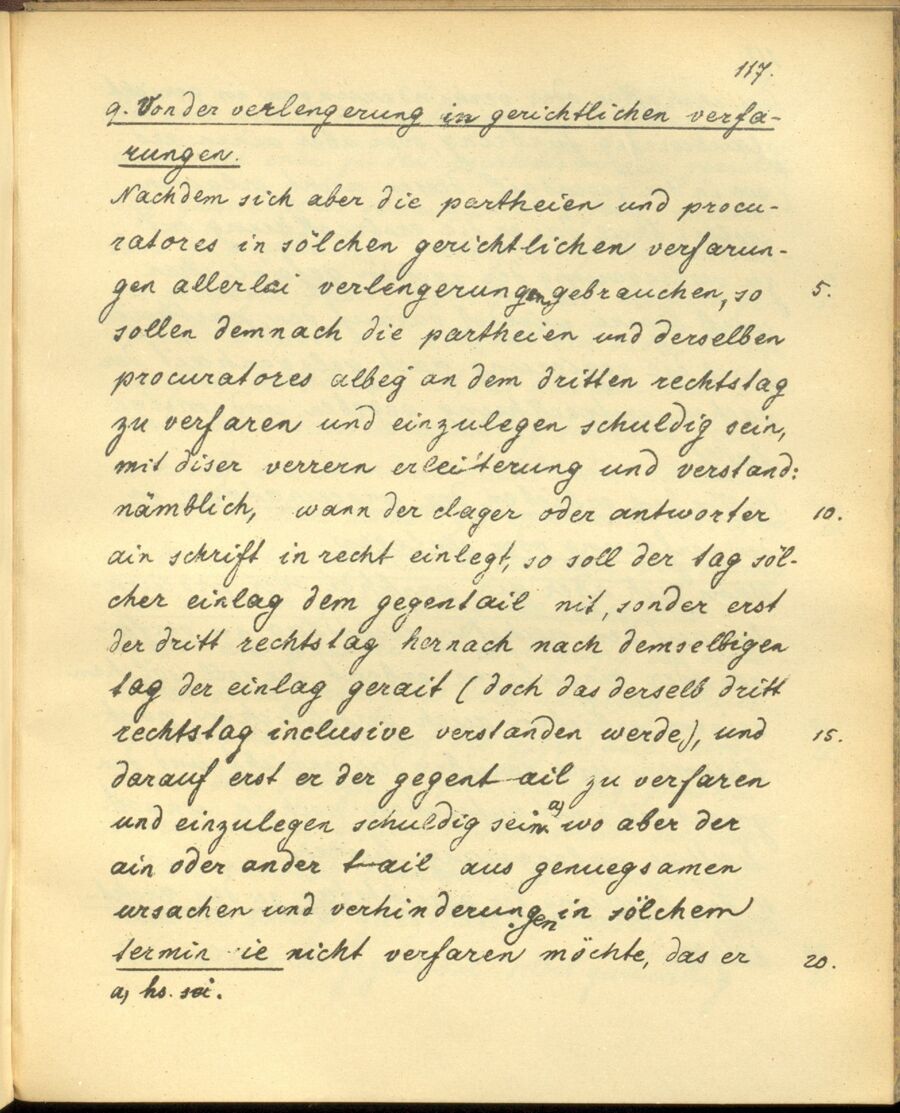 117.
9. Von der verlengerung in gerichtlichen verfa-
rungen.
Nachdem sich aber die partheien und procu-
ratores in sölchen gerichtlichen verfarun-
gen allerlei verlengerungen gebrauchen, so 5.
sollen demnach die partheien und derselben
procuratores albeg an dem dritten rechtstag
zu verfaren und einzulegen schuldig sein,
mit diser verrern erleiterung und verstand:
nämblich, wann der clager oder antworter 10.
ain schrift in recht einlegt, so soll der tag söl-
cher einlag dem gegentail nit, sonder erst
der dritt rechtstag hernach nach demselbigen
tag der einlag gerait (doch das derselb dritt
rechtstag inclusive verstanden werde), und 15.
darauf erst er der gegentail zu verfaren
und einzulegen schuldig sein. a) wo aber der
ain oder ander tail aus genuegsamen
ursachen und verhinderungen in sölchem
termin ie nicht verfaren möchte, das er 20.
a) hs. sei.